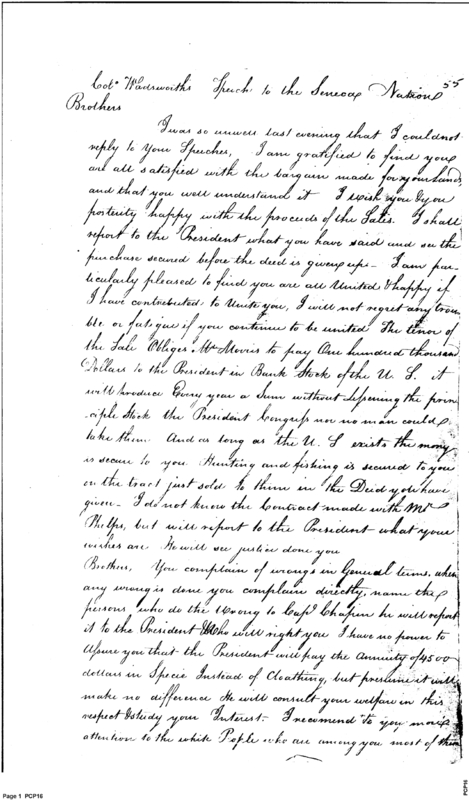 55
Colo. Wadsworths Speech to the Seneca Nation
Brothers
I was so unwell last evening that I could not
reply to Your Speeches, I am gratified to find you
are all satisfied with the bargain made for your Lands
and that you well understand it I wish you & your
posterity happy with the proceeds of the Sales. I shall
report to the President what you have said and see the
purchase secured before the deed is given up - I am par-
ticularly pleased to find you are all United & happy if
I have contributed to Unite you, I will not regret any trou-
ble or fatigue if you continue to be united The tenor of
the Sale Obliges Mr. Morris to pay One hundred thousand
Dollars to the President in Bank Stock of the U. S. it
will produce Every year a Sum without lessening the prin-
ciple Stock the President Congress nor no man could
take them. And as long as the U. S exists the money
is secure to you Hunting and fishing is secured to you
on the tract just sold to them in the Deed you have
given - I do not know the Contract made with Mr.
Phelps, but will report to the President what your
wishes are He will see justice done you
Brothers, You complain of wrongs in General terms, when
any wrong is done you complain directly, name the
persons who do the Wrong to Capt. Chapin he will report
it to the President Who will right you I have no power to
assure you that the President will pay the Annuity of 4500
dollars in Specie Instead of Cloathing, but presume it will
make no difference He will consult your welfare in this
respect & study your Interest - I recomend to you more
attention to the white People who are among you most of them
Page 1 PCP16
PCP16